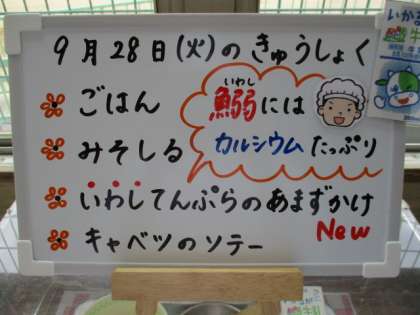 9月28日(火)のきゅうしょく
ごはん
みそしる
いわしてんぷらのあまずかけ
New
キャベツのソテー
いわし
鰯には
カルシウムたっぷり